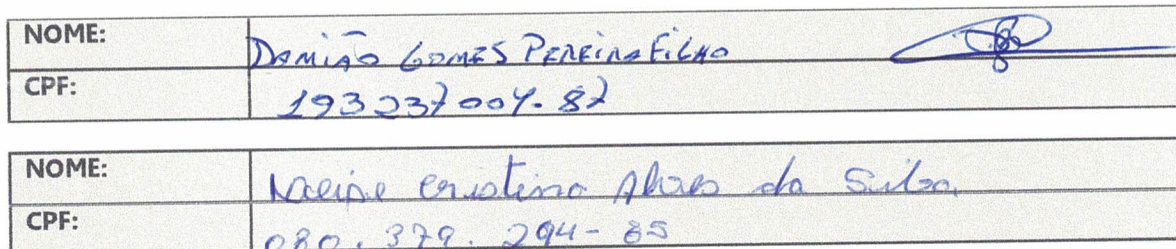 NOME: DAMIÃO GOMES PEREIRA FILHO
CPF: 193237004-87
NOME: Cristina Alves da Silva
CPF: 080.379.294-85